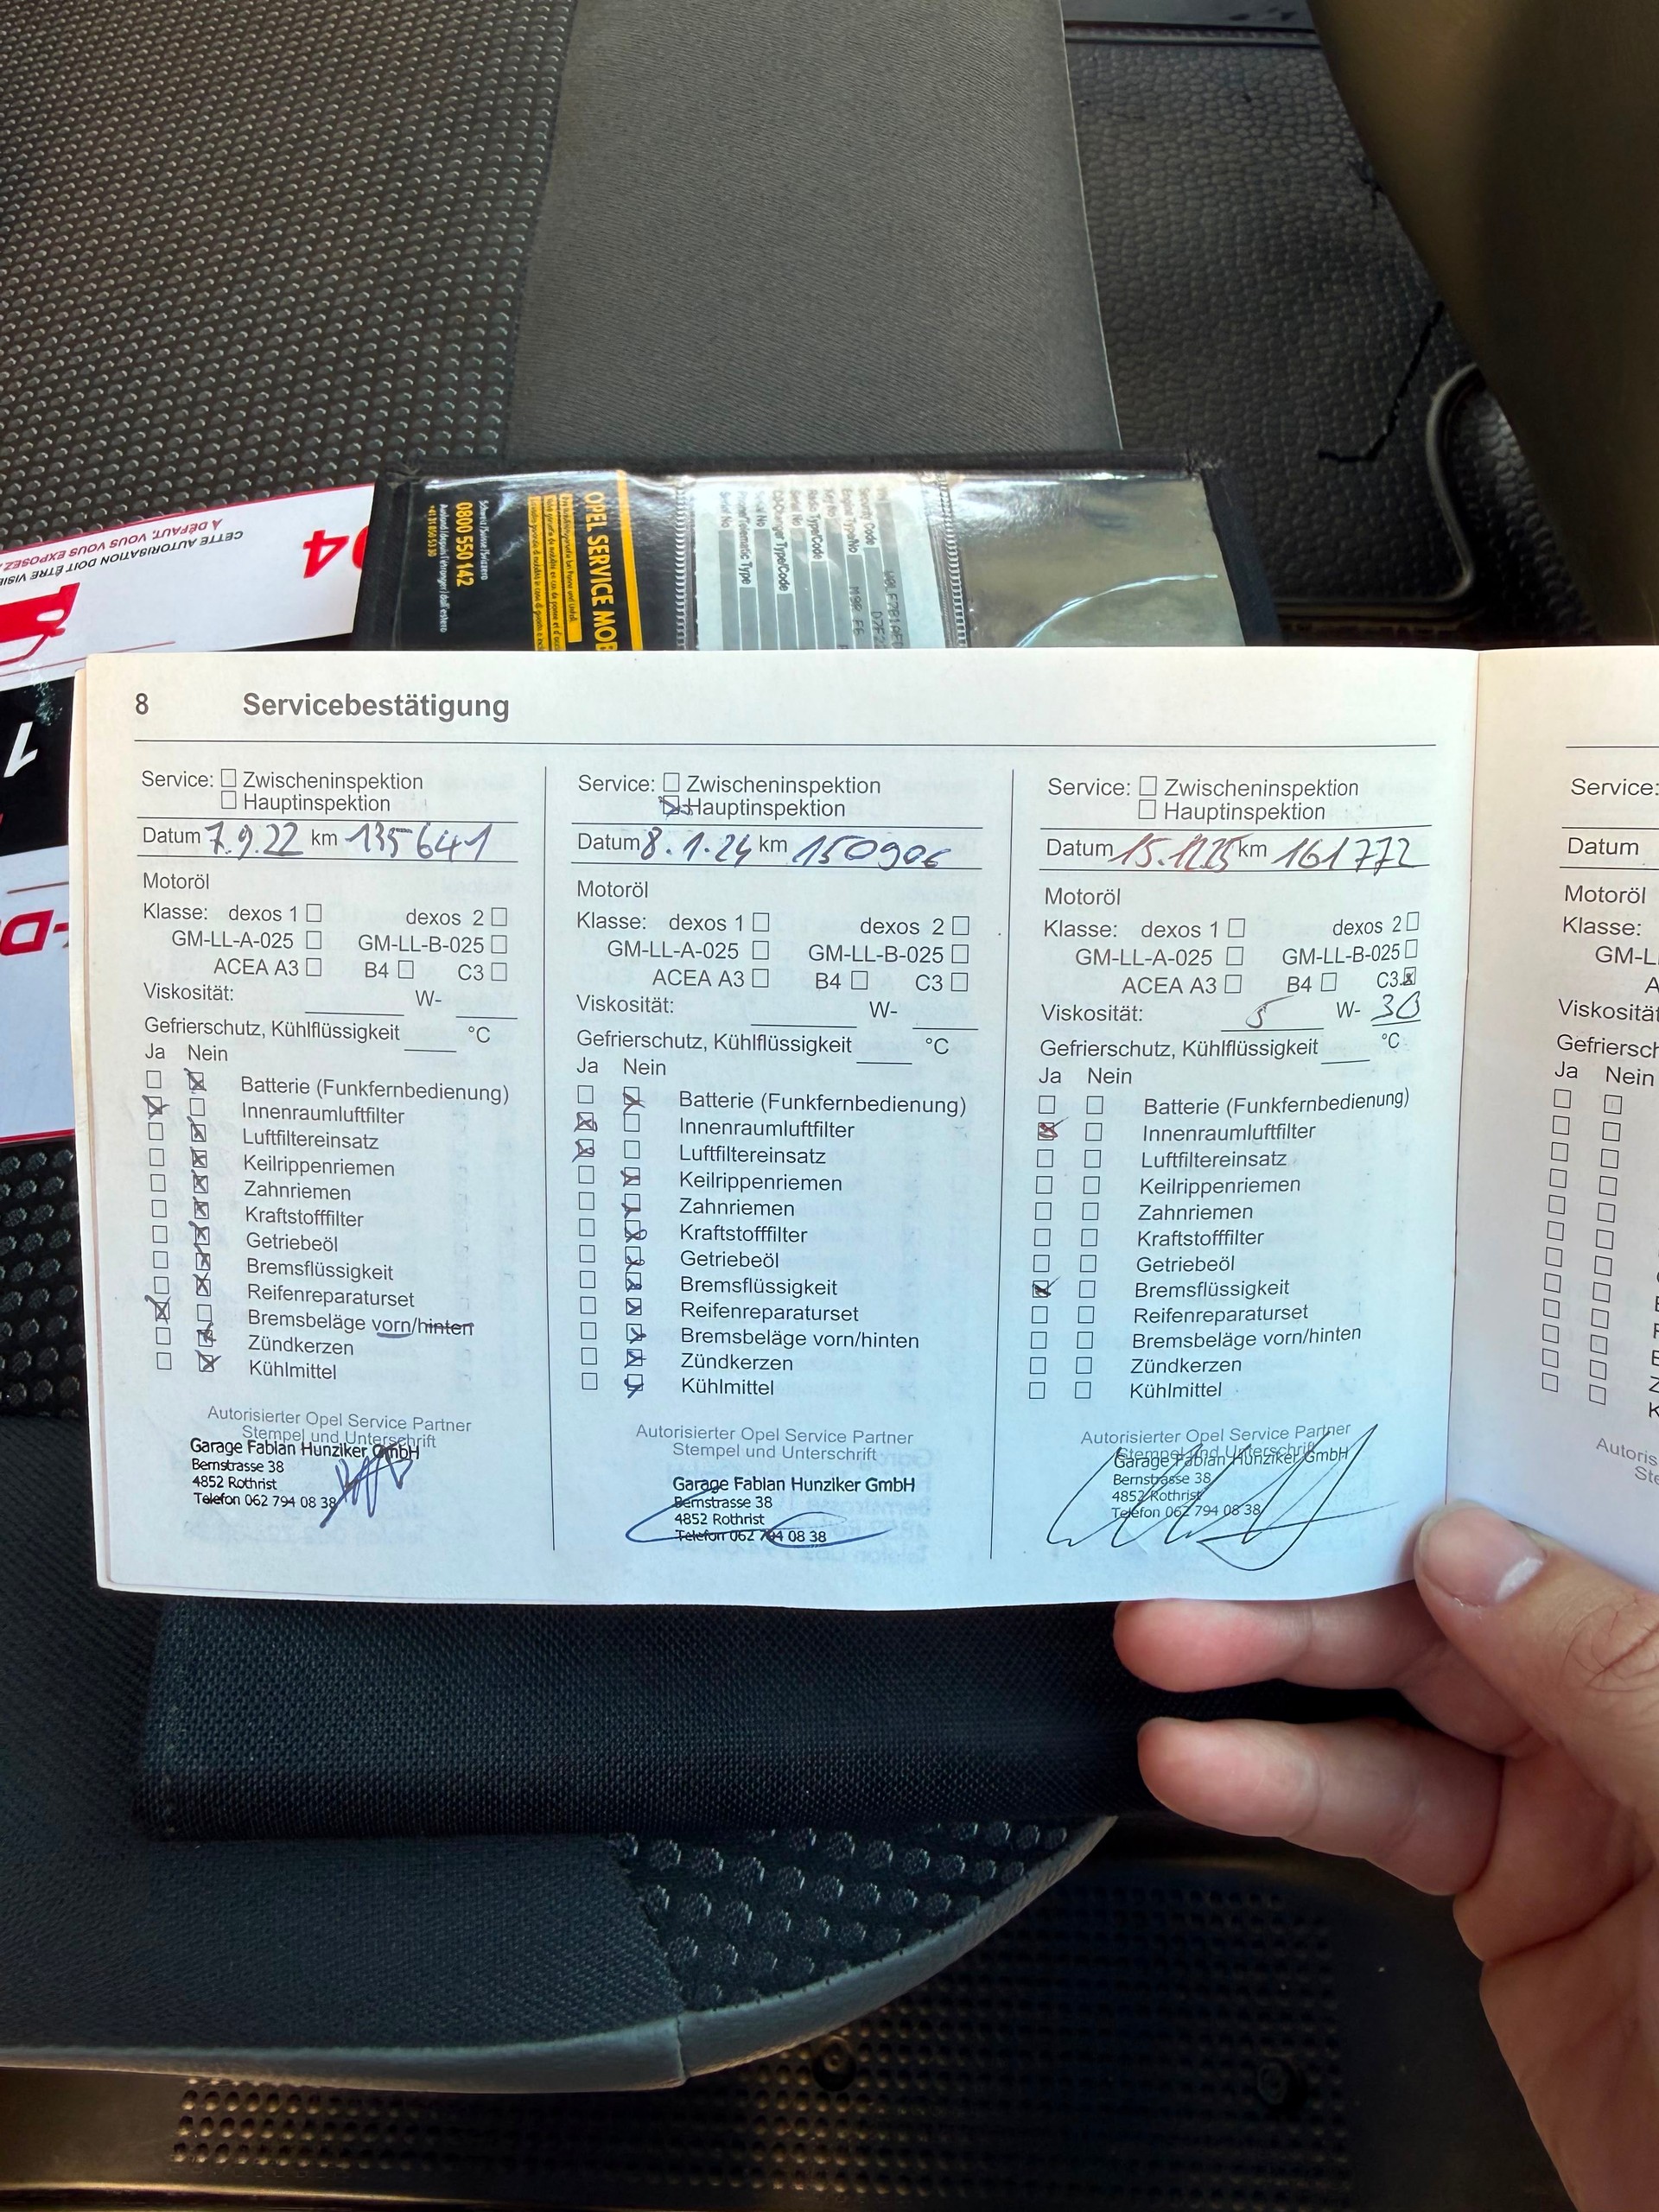 CETTE AUTORISATION DOIT ÊTRE
À DÉFAUT, VOUS VOUS EXPOSEZ
OPEL SERVICE
0800 550 142
8 Servicebestätigung
Service: Zwischeninspektion
Hauptinspektion
Datum 7.9.22 km 135641
Motoröl
Klasse: dexos 1 dexos 2
GM-LL-A-025 GM-LL-B-025
ACEA A3 B4 C3
Viskosität: W-
Gefrierschutz, Kühlflüssigkeit °C
Ja Nein
Batterie (Funkfernbedienung)
Innenraumluftfilter
Luftfiltereinsatz
Keilrippenriemen
Zahnriemen
Kraftstofffilter
Getriebeöl
Bremsflüssigkeit
Reifenreparaturset
Bremsbeläge vorn/hinten
Zündkerzen
Kühlmittel
Autorisierter Opel Service Partner
Stempel und Unterschrift
Garage Fabian Hunziker GmbH
Bernstrasse 38
4852 Rothrist
Telefon 062 794 08 38
Service: Zwischeninspektion
Hauptinspektion
Datum 8.1.24 km 150906
Motoröl
Klasse: dexos 1 dexos 2
GM-LL-A-025 GM-LL-B-025
ACEA A3 B4 C3
Viskosität: W-
Gefrierschutz, Kühlflüssigkeit °C
Ja Nein
Batterie (Funkfernbedienung)
Innenraumluftfilter
Luftfiltereinsatz
Keilrippenriemen
Zahnriemen
Kraftstofffilter
Getriebeöl
Bremsflüssigkeit
Reifenreparaturset
Bremsbeläge vorn/hinten
Zündkerzen
Kühlmittel
Autorisierter Opel Service Partner
Stempel und Unterschrift
Garage Fabian Hunziker GmbH
Bernstrasse 38
4852 Rothrist
Telefon 062 794 08 38
Service: Zwischeninspektion
Hauptinspektion
Datum km 161772
Motoröl
Klasse: dexos 1 dexos 2
GM-LL-A-025 GM-LL-B-025
ACEA A3 B4 C3
Viskosität: 5 W- 30
Gefrierschutz, Kühlflüssigkeit °C
Ja Nein
Batterie (Funkfernbedienung)
Innenraumluftfilter
Luftfiltereinsatz
Keilrippenriemen
Zahnriemen
Kraftstofffilter
Getriebeöl
Bremsflüssigkeit
Reifenreparaturset
Bremsbeläge vorn/hinten
Zündkerzen
Kühlmittel
Autorisierter Opel Service Partner
Stempel und Unterschrift
Garage Fabian Hunziker GmbH
Bernstrasse 38
4852 Rothrist
Telefon 062 794 08 38
Service:
Datum
Motoröl
Klasse:
Ja Nein